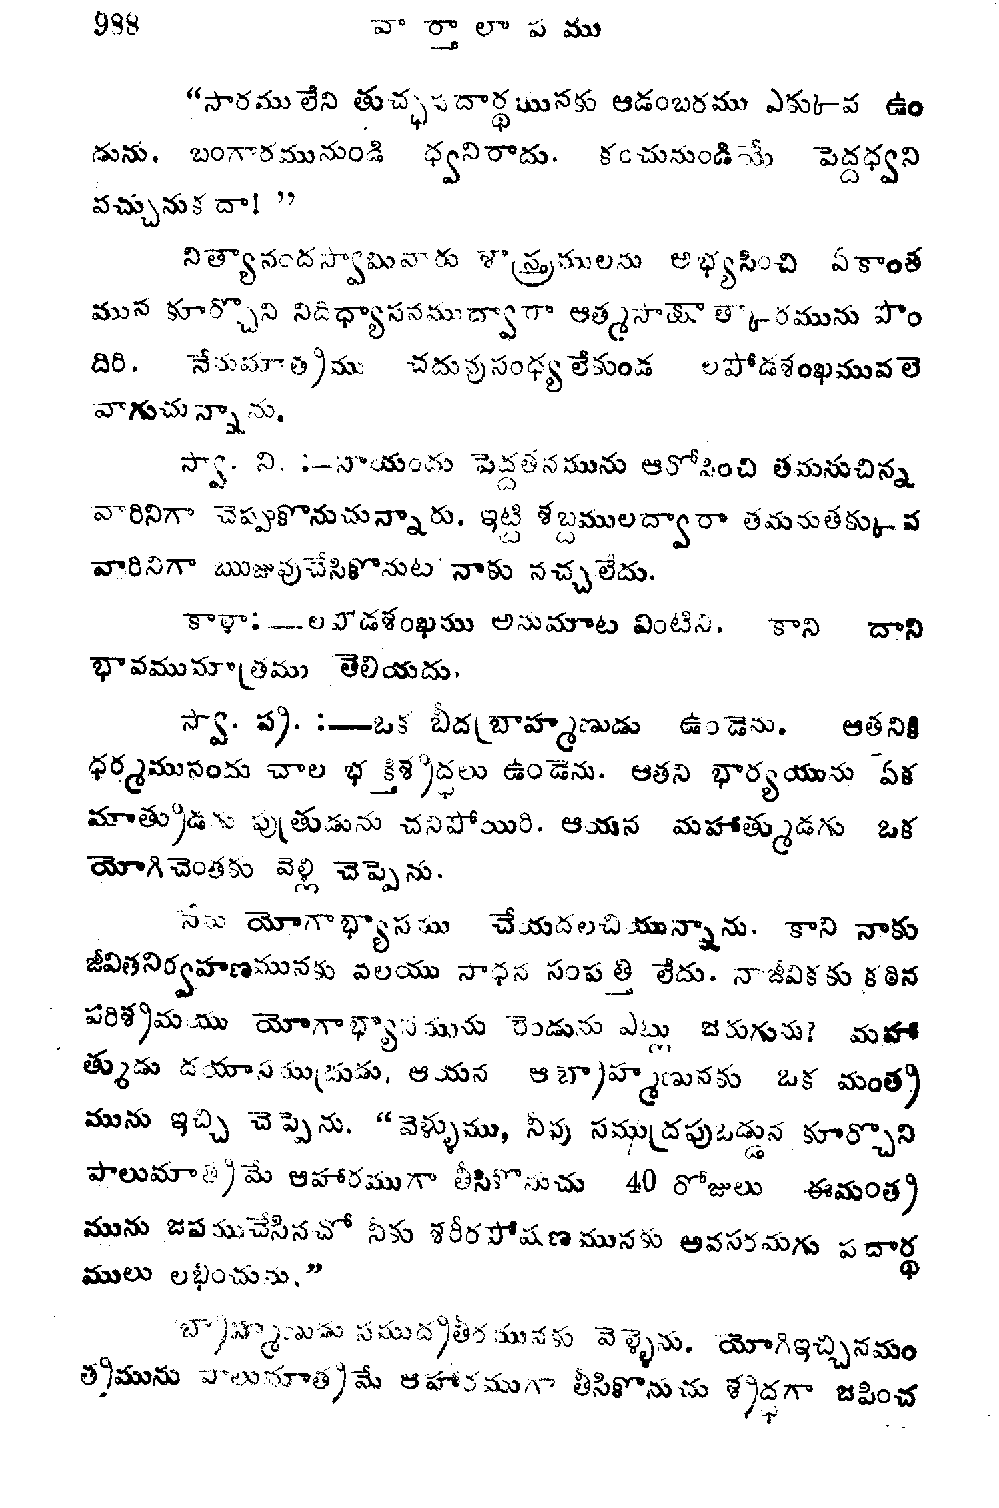 988 వార్తాలాపము
“సారములేని తుచ్ఛపదార్థమునకు ఆడంబరము ఎక్కువ ఉం
డును. బంగారమునుండి ధ్వనిరాదు. కంచునుండియే పెద్దధ్వని
వచ్చునుకదా! ”
నిత్యానందస్వామివారు శాస్త్రములను అభ్యసించి ఏకాంత
మున కూర్చొని నిదిధ్యాసనముద్వారా ఆత్మసాక్షాత్కారమును పొం
దిరి. నేనుమాత్రము చదువుసంధ్యలేకుండ లపోడశంఖమువలె
వాగుచున్నాను.
స్వా. ని. :—నాయందు పెద్దతనమును ఆరోపించి తమనుచిన్న
వారినిగా చెప్పుకొనుచున్నారు. ఇట్టి శబ్దములద్వారా తమనుతక్కువ
వారినిగా ఋజువుచేసికొనుట నాకు నచ్చలేదు.
కాళా: —లపోడశంఖము అనుమాట వింటిని. కాని దాని
భావముమాత్రము తెలియదు.
స్వా. ప్ర. :—ఒక బీదబ్రాహ్మణుడు ఉండెను. ఆతనికి
ధర్మమునందు చాల భక్తిశ్రద్ధలు ఉండెను. ఆతని భార్యయును ఏక
మాత్రుడగు పుత్రుడును చనిపోయిరి. ఆయన మహాత్ముడగు ఒక
యోగిచెంతకు వెళ్లి చెప్పెను.
నేను యోగాభ్యాసము చేయదలచియున్నాను. కాని నాకు
జీవితనిర్వహణమునకు వలయు సాధన సంపత్తి లేదు. నాజీవికకు కఠిన
పరిశ్రమయు యోగాభ్యాసమును రెండును ఎట్లు జరుగును? మహా
త్ముడు దయాసముద్రుడు, ఆయన ఆబ్రాహ్మణునకు ఒక మంత్ర
మును ఇచ్చి చెప్పెను. “వెళ్ళుము, నీవు సముద్రపుఒడ్డున కూర్చొని
పాలుమాత్రమే ఆహారముగా తీసికొనుచు 40 రోజులు ఈమంత్ర
మును జపముచేసినచో నీకు శరీరపోషణమునకు అవసరమగు పదార్థ
ములు లభించును.”
బ్రాహ్మణుడు సముద్రతీరమునకు వెళ్ళెను. యోగిఇచ్చినమం
త్రమును పాలుమాత్రమే ఆహారముగా తీసికొనుచు శ్రద్ధగా జపించ